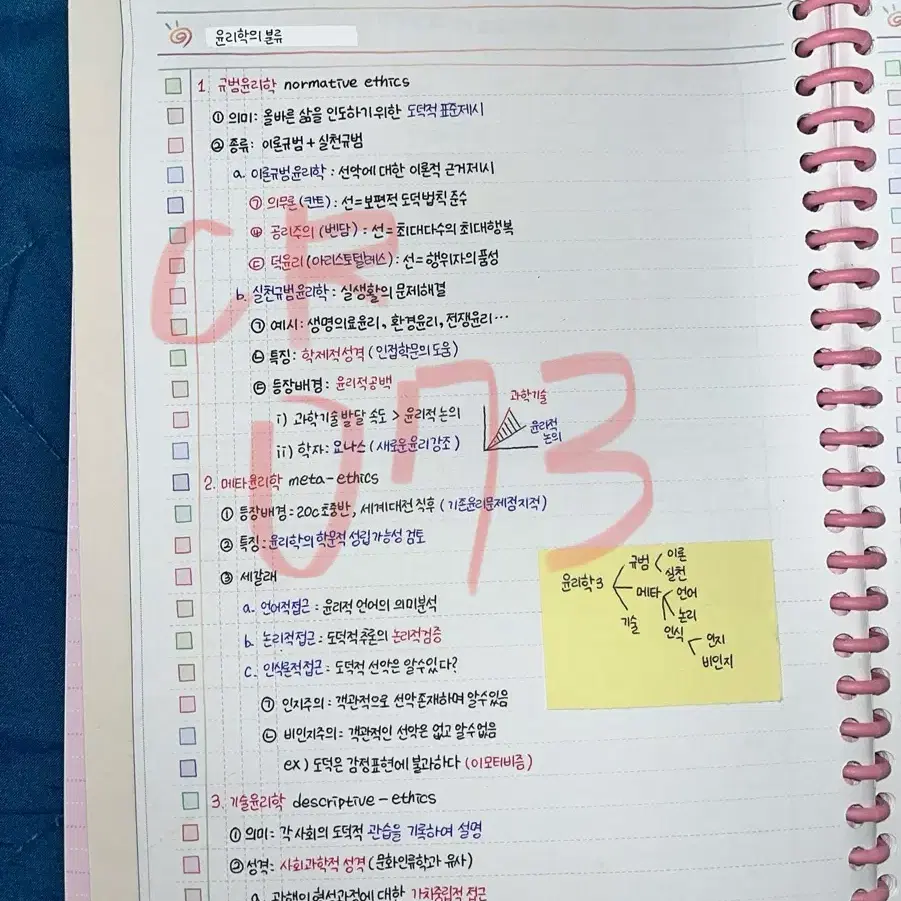 윤리학의 분류
1. 규범윤리학 normative ethics
① 의미: 올바른 삶을 인도하기 위한 도덕적 표준제시
② 종류: 이론규범 + 실천규범
a. 이론규범윤리학: 선악에 대한 이론적 근거제시
㉠ 의무론(칸트): 선=보편적 도덕법칙 준수
㉡ 공리주의(벤담): 선=최대다수의 최대행복
㉢ 덕윤리(아리스토텔레스): 선=행위자의 품성
b. 실천규범윤리학: 실생활의 문제해결
㉠ 예시: 생명의료윤리, 환경윤리, 전쟁윤리…
㉡ 특징: 학제적성격(인접학문의 도움)
㉢ 등장배경: 윤리적공백
i) 과학기술 발달 속도 > 윤리적 논의
ii) 학자: 요나스(새로운윤리강조)
과학기술
윤리적
논의
2. 메타윤리학 meta-ethics
① 등장배경: 20c 초중반, 세계대전 직후 (기존윤리문제점지적)
② 특징: 윤리학의 학문적 성립 가능성 검토
③ 세갈래
a. 언어적접근: 윤리적 언어의 의미분석
b. 논리적접근: 도덕적추론의 논리적검증
c. 인식론적접근: 도덕적 선악은 알수있다?
㉠ 인지주의: 객관적으로 선악존재하며 알수있음
㉡ 비인지주의: 객관적인 선악은 없고 알수없음
ex) 도덕은 감정표현에 불과하다 (이모티비즘)
윤리학 3
규범
이론
실천
메타
언어
논리
인식
인지
비인지
기술
3. 기술윤리학 descriptive-ethics
① 의미: 각 사회의 도덕적 관습을 기록하여 설명
② 성격: 사회과학적 성격(문화인류학과 유사)
a. 관행의 형성과정에 대한 가치중립적 접근
CR
073